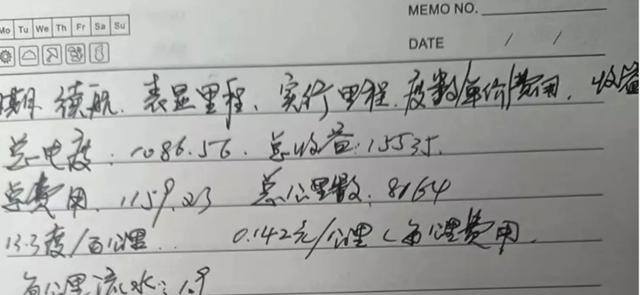 MEMO NO.
Mo Tu We Th Fr Sa Su
DATE / /
期 续航. 表显里程、实行里程. 度数/单价/费用. 收益
总电度: 1086.56. 总收益: 15535.
总费用. 1159.23 总公里数. 8164
13.3度/百公里.. 0.142元/公里(每公里费用.
每公里流水: 1.9